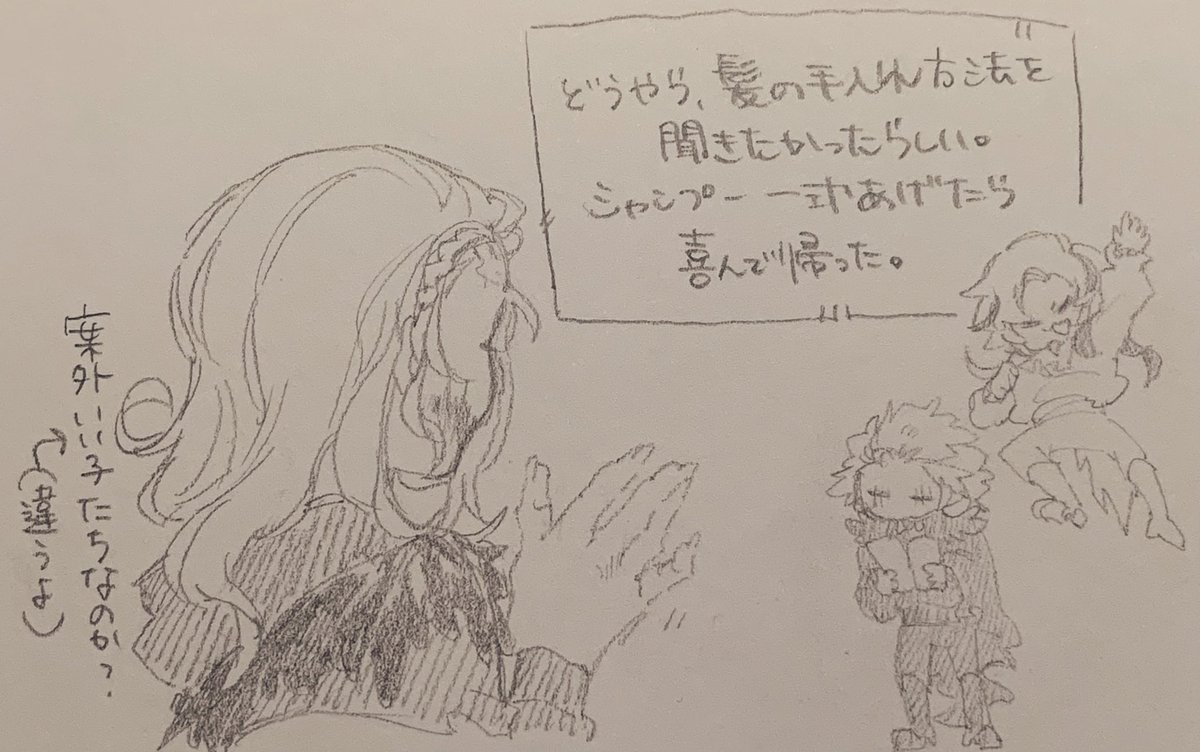 どうやら、髪の手入れ方法を
聞きたかったらしい。
シャンプー一式あげたら
喜んで帰った。
案外いい子たちなのか？
(違うよ)